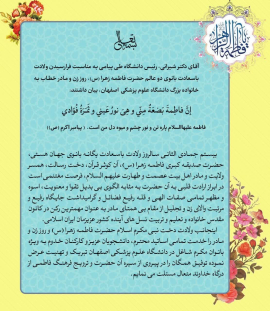 بسمه تعالی
آقای دکتر شیرانی، رئیس دانشگاه طی پیامی به مناسبت فرارسیدن ولادت
باسعادت بانوی دو عالم حضرت فاطمه زهرا (س)، روز زن و مادر خطاب به
خانواده بزرگ دانشگاه علوم پزشکی اصفهان، بیان داشتند:
إنَّ فاطِمَةَ بَضعَةٌ مِنِّي و هِيَ نورُ عَيني و ثَمَرَةُ فُؤادي
فاطمه علیهاالسلام پاره تن و نور چشم و میوه دل من است. (پیامبر اکرم (ص))
بیستم جمادی الثانی سالروز ولادت باسعادت یگانه بانوی جهان هستی،
حضرت صدیقه کبری فاطمه زهرا (س)، آن کوثر قرآن، دخت رسالت، همسر
ولایت و مادر اهل بیت عصمت و طهارت علیهم السلام، فرصت مغتنمی است
در ابراز ارادت قلبی به آن حضرت به مثابه الگوی بی بدیل تقوا و معنویت، اسوه
و مظهر تمامی صفات الهی و قله رفیع فضائل و گرامیداشت جایگاه رفیع و
مرتبت والای زن و تجلیل از مقام بی همتای مادر به عنوان مهمترین رکن در کانون
مقدس خانواده و تعلیم و تربیت نسل های آینده کشور عزیزمان ایران اسلامی.
اینجانب، ولادت دخت نبی مکرم اسلام حضرت فاطمه زهرا (س) و روز زن و
مادر را خدمت تمامی اساتید محترم، دانشجویان عزیز و کارکنان خدوم به ویژه
بانوان مکرم شاغل در دانشگاه علوم پزشکی اصفهان تبریک و تهنیت عرض
نموده توفیق همگان را در پیروی از سیره آن حضرت و ترویج فرهنگ فاطمی از
درگاه خداوند متعال مسئلت می نمایم.